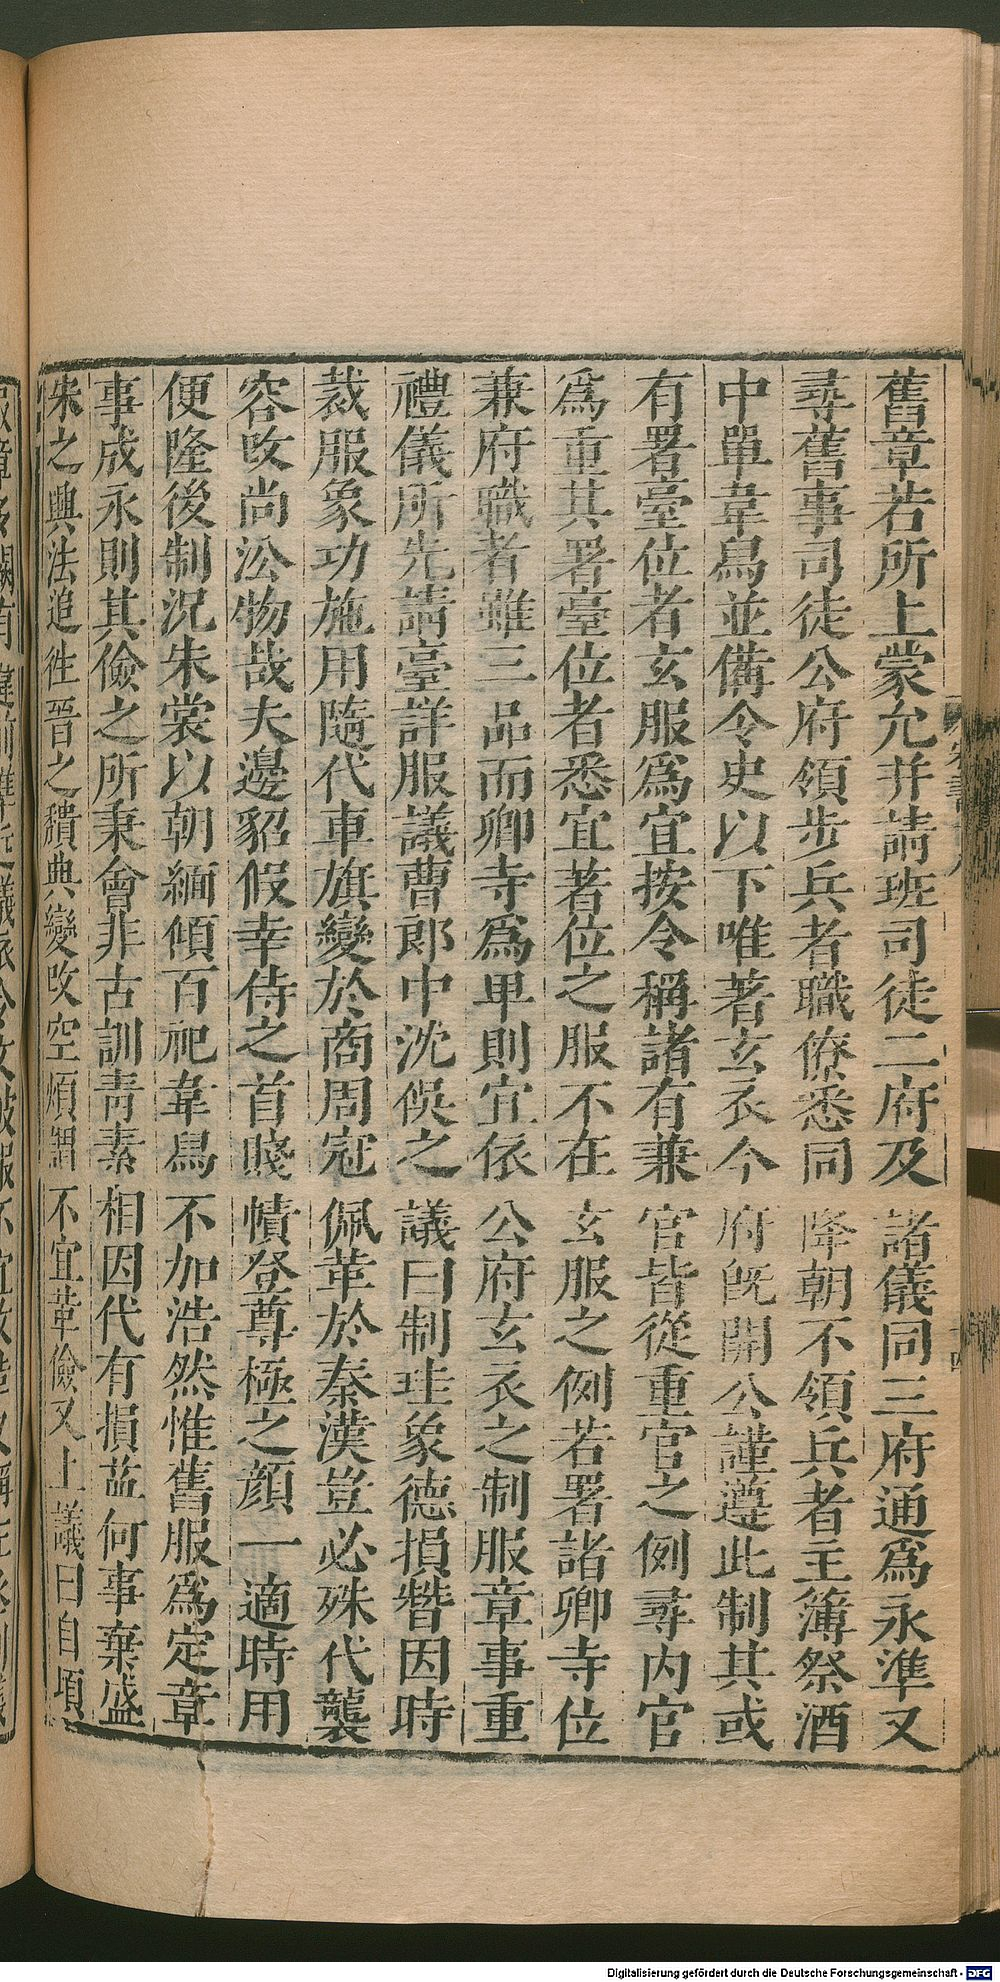 舊章若所上蒙允并請班司徒二府及諸儀同三府通爲永準又
尋舊事司徒公府領步兵者職僚悉同降朝不領兵者主簿祭酒
中單韋舄並備令史以下唯著玄衣今府旣開公謹遵此制其或
有署臺位者玄服爲宜按令稱諸有兼官皆從重官之例尋內官
爲重其署臺位者悉宜著位之服不在玄服之例若署諸卿寺位
兼府職者雖三品而卿寺爲卑則宜依公府玄衣之制服章事重
禮儀所先請臺詳服議曹郎中沈俁之議曰制珪象德損替因時
裁服象功施用隨代車旗變於商周冠佩革於秦漢豈必殊代襲
容改尚沿物哉夫邊貂假幸侍之首賤幘登尊極之顏一適時用
便隆後制況朱裳以朝緬傾百祀韋舄不加浩然惟舊服爲定章
事成永則其儉之所秉會非古訓靑素相因代有損益何事棄盛
宋之興法追往晉之穨典變改空煩謂不宜革儉又上議曰自頃
宋書十八
十四
Digitalisierung gefördert durch die Deutsche Forschungsgemeinschaft - DFG